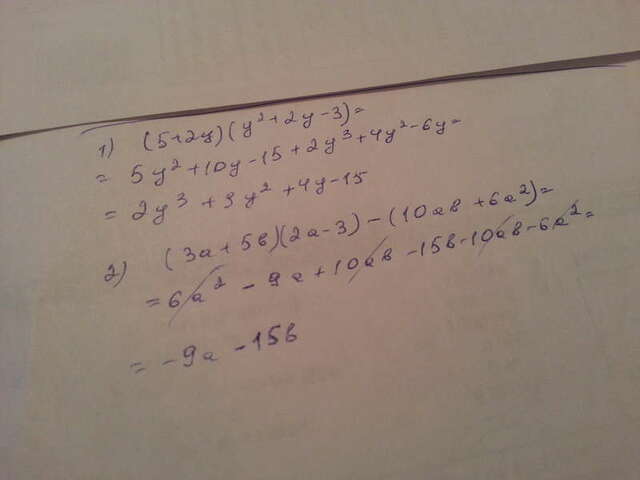 1) (5+2y)(y²+2y-3)=
= 5y²+10y-15+2y³+4y²-6y=
= 2y³+9y²+4y-15
2) (3a+5b)(2a-3)-(10ab+6a²)=
=6a²-9a+10ab-15b-10ab-6a²=
= -9a-15b